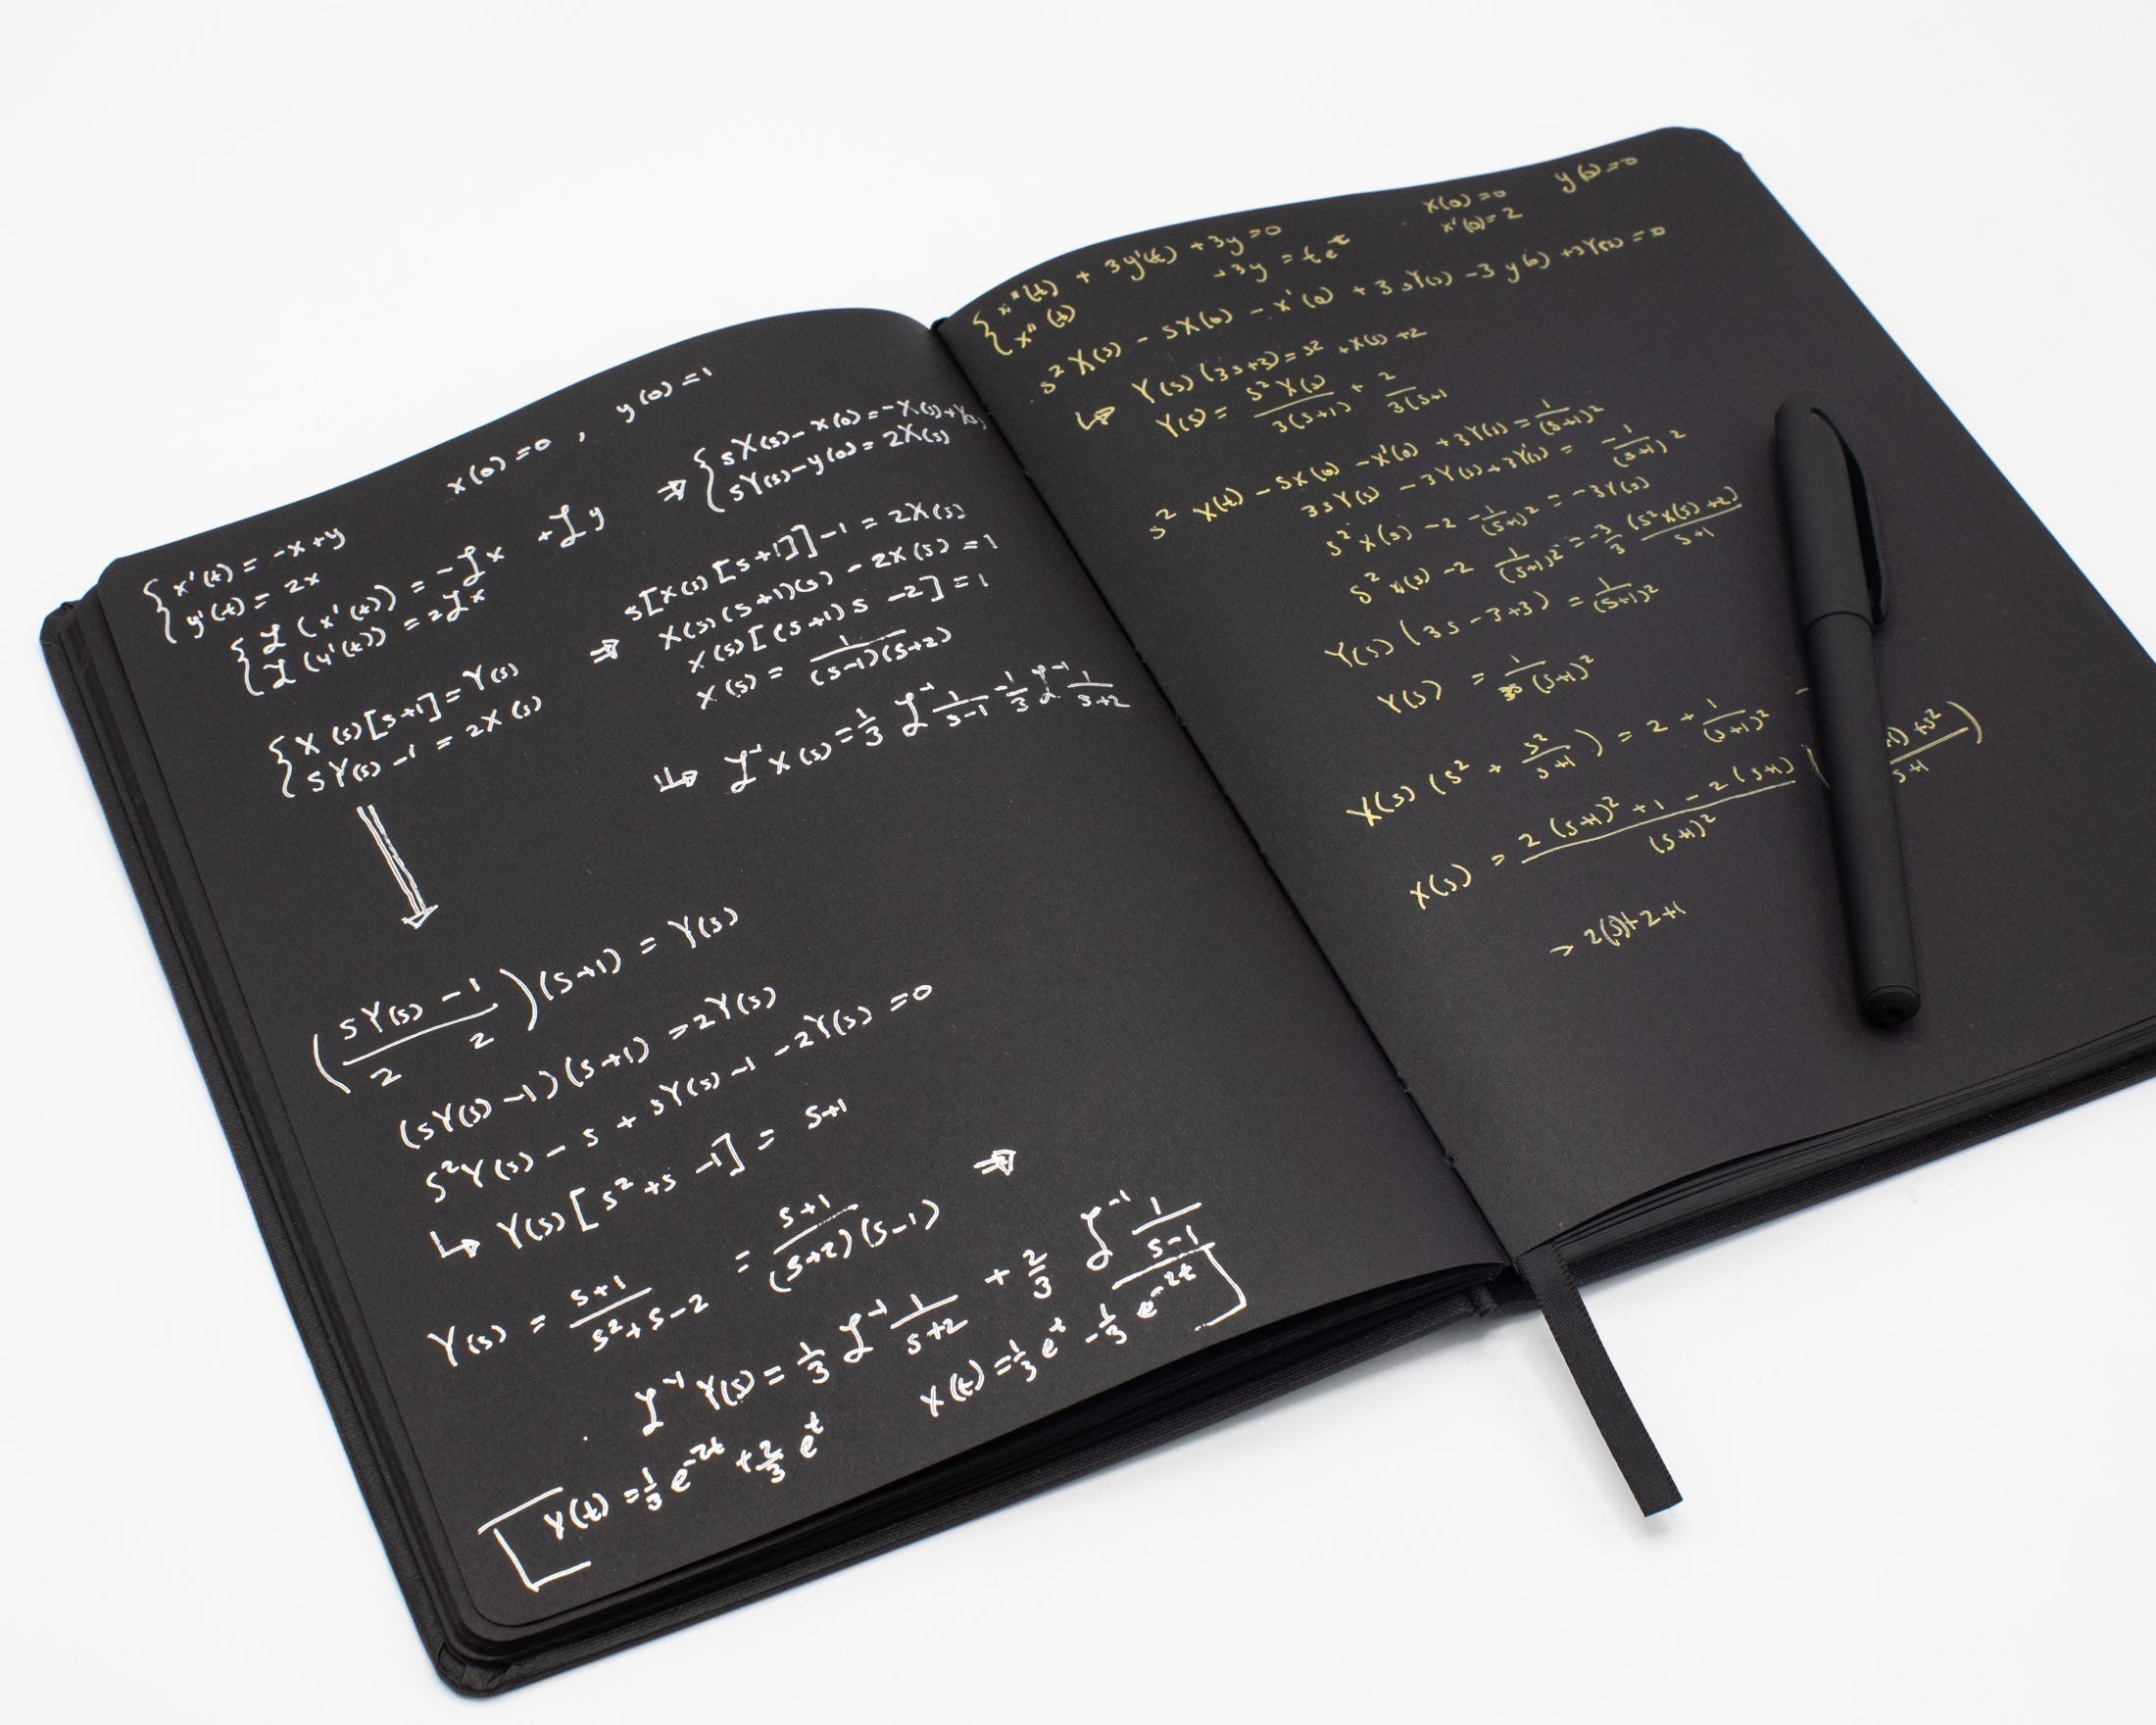 x(0)=0 , y(0)=1
{ x'(t) = -x+y
y'(t) = 2x
{ ℒ(x'(t)) = -ℒx + ℒy
ℒ(y'(t)) = 2ℒx
⇒ { sX(s)-x(0) = -X(s)+Y(s)
sY(s)-y(0) = 2X(s)
{ X(s)[s+1] = Y(s)
sY(s)-1 = 2X(s)
⇒ s[X(s)[s+1]]-1 = 2X(s)
X(s)(s+1)(s) - 2X(s) = 1
X(s)[(s+1)s -2] = 1
X(s) = 1/((s-1)(s+2))
↳ ℒ⁻¹ X(s) = 1/3 ℒ⁻¹ 1/(s-1) - 1/3 ℒ⁻¹ 1/(s+2)
((sY(s) -1)/2 2)(s+1) = Y(s)
(sY(s)-1)(s+1) = 2Y(s)
s²Y(s) - s + sY(s) -1 -2Y(s) = 0
↳ Y(s)[s²+s -1] = s+1
Y(s) = (s+1)/(s²+s-2) = (s+1)/((s+2)(s-1)) ⇒
ℒ⁻¹ Y(s) = 1/3 ℒ⁻¹ 1/(s+2) + 2/3 ℒ⁻¹ 1/(s-1)
Y(t) = 1/3 e^-2t + 2/3 e^t
X(t) = 1/3 e^t - 1/3 e^-2t
{ x''(t) + 3y'(t) + 3y = 0
x''(t) +3y = te^t
x(0)=0 y(0)=0
x'(0)=2
s²X(s) - sX(0) - x'(0) + 3sY(s) -3y(0) +3Y(s) = 0
↳ Y(s)(3s+3) = s² +X(s) +2
Y(s) = s²X(s)/3(s+1) + 2/3(s+1
s² X(t) - sX(0) -x'(0) +3Y(s) = 1/(s+1)²
3sY(s) -3Y(s)+3Y(s) = -1/(s+1)²
s²X(s) -2 -1/(s+1)² = -3Y(s)
s²X(s) -2 1/(s+1)² = -3/3 (s²X(s)+2)/(s+1)
Y(s)(3s-3+3) = 1/(s+1)²
Y(s) = 1/3s(s+1)²
X(s)(s² + s²/(s+1)) = 2 + 1/(s+1)² -
X(s) = (2(s+1)²+1-2(s+1))/(s+1)² ( +1)+s²/(s+1) )
→ 2(s)+2+1